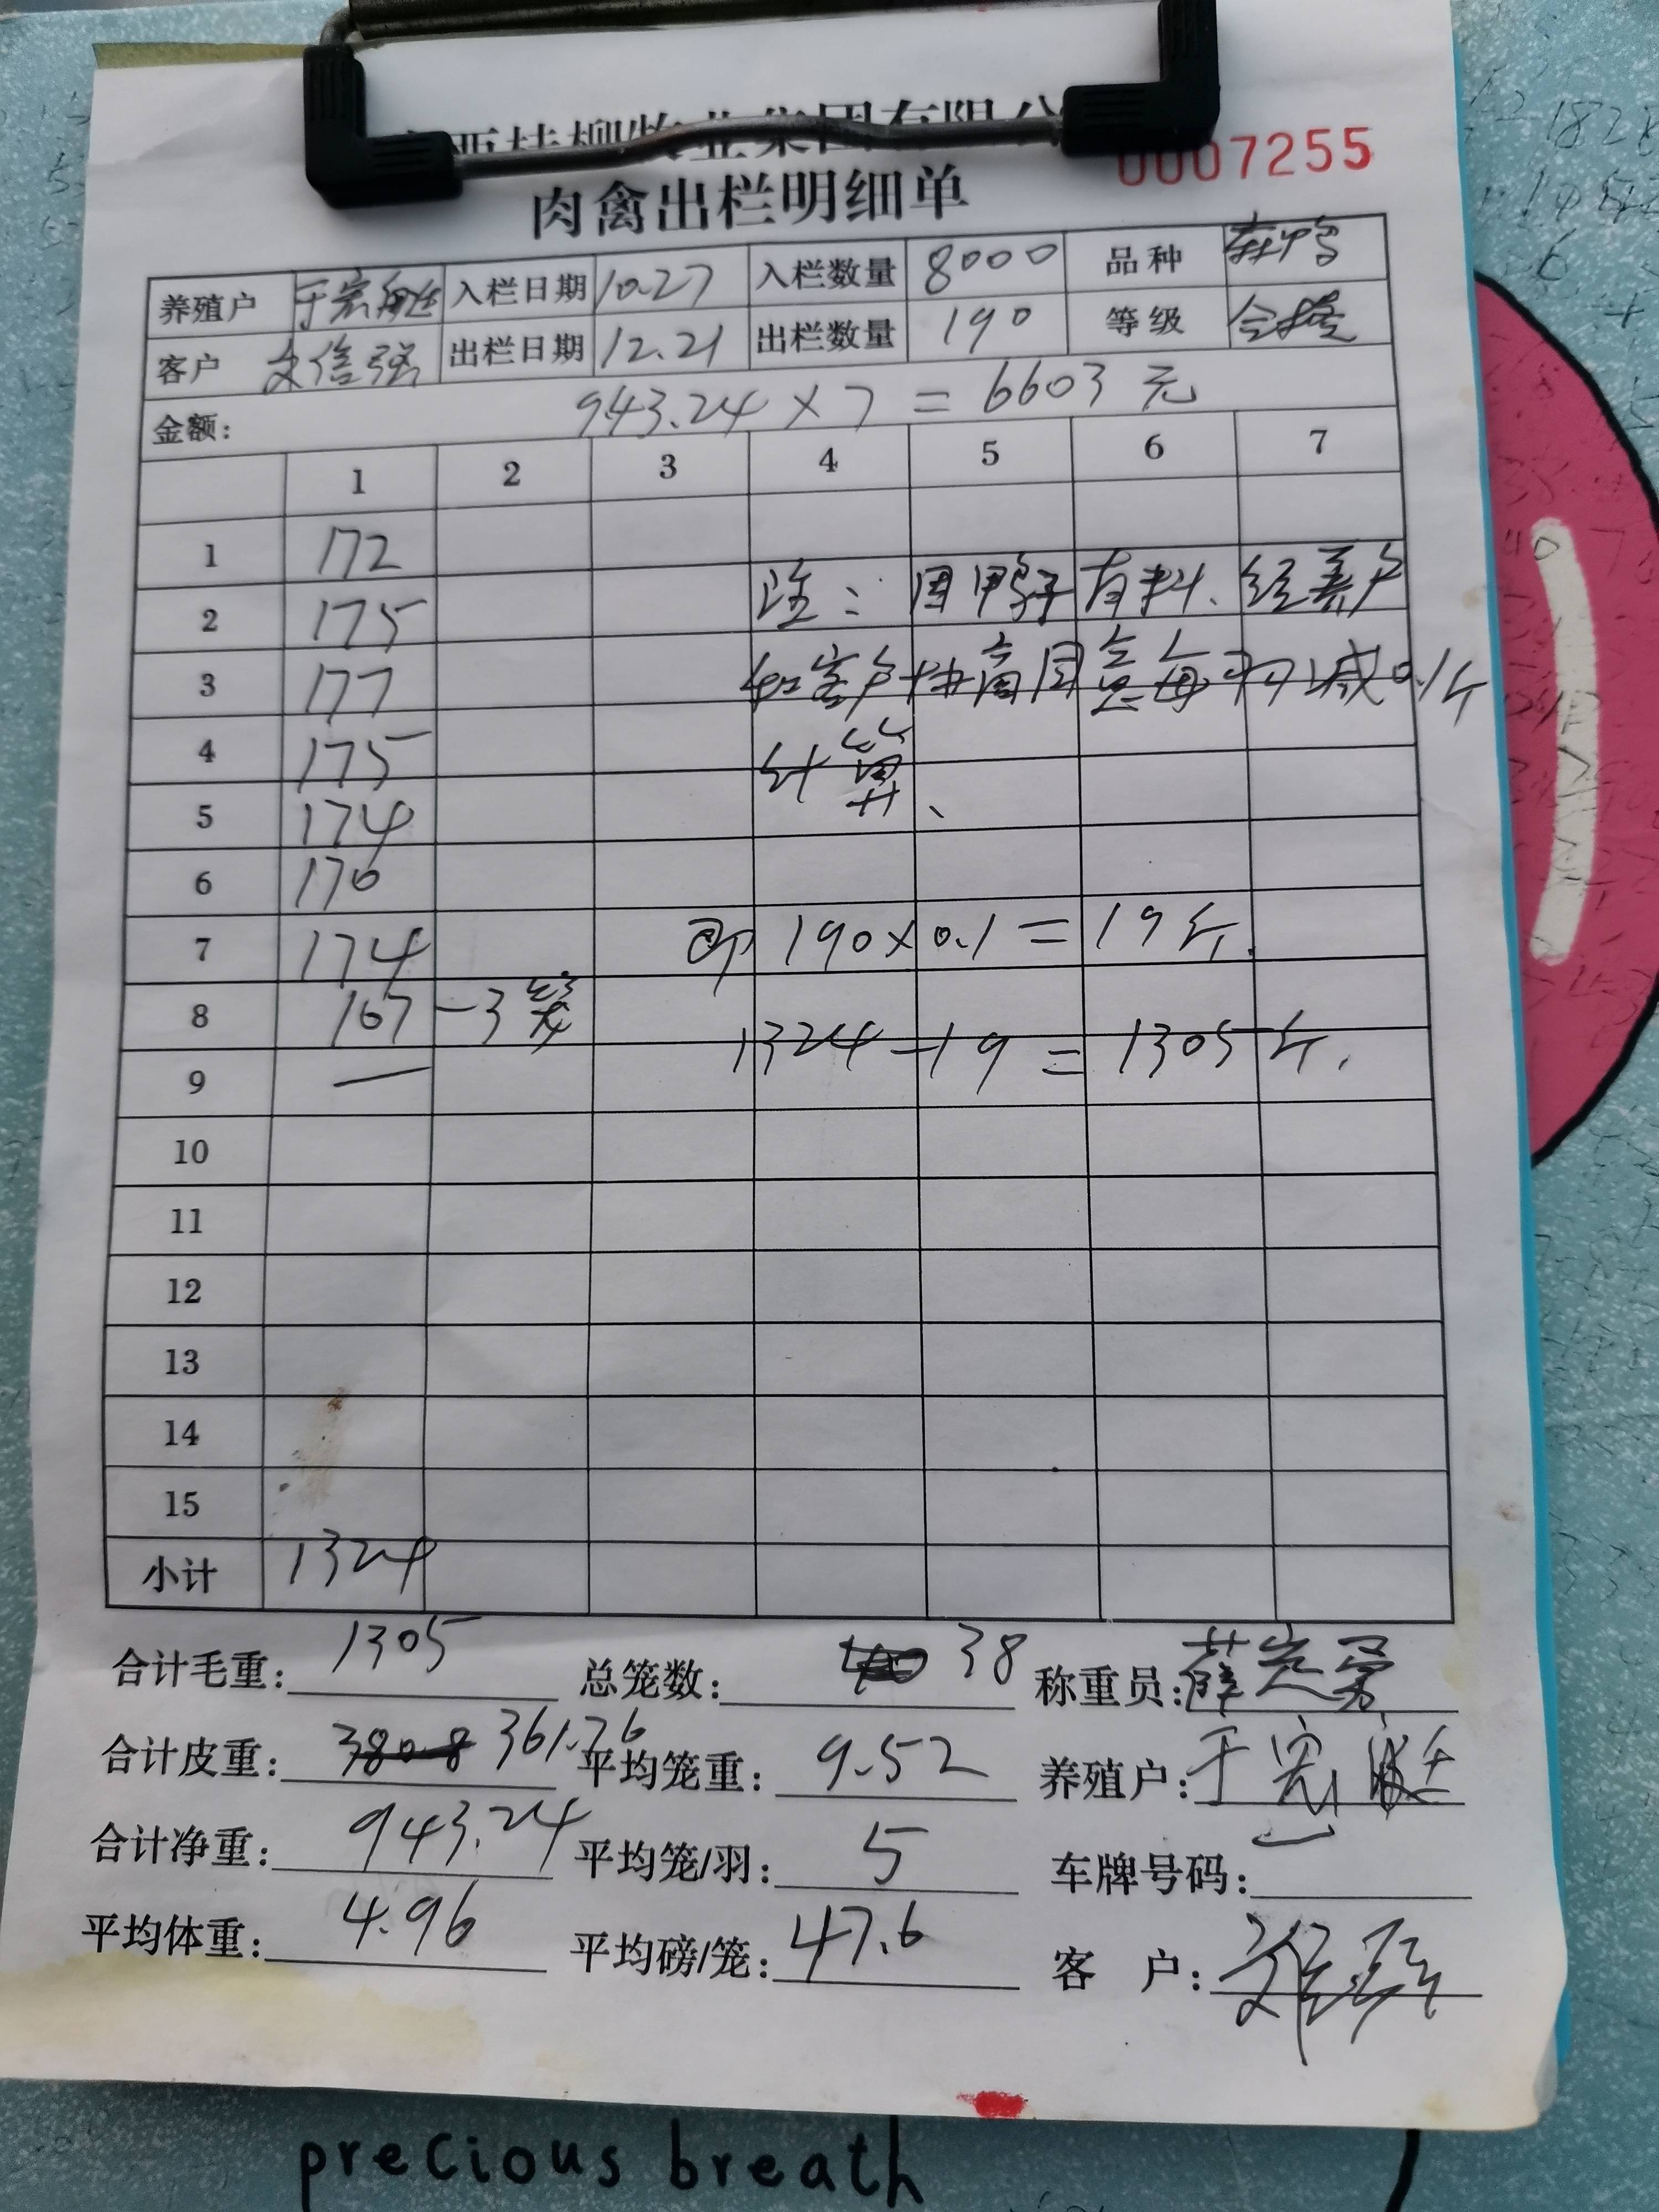 西桂柳牧业集团有限公
0007255
肉禽出栏明细单
养殖户 于宏 入栏日期 10.27 入栏数量 8000 品种
客户 文信强 出栏日期 12.21 出栏数量 190 等级
金额: 943.24×7=6603元
1 2 3 4 5 6 7
1 172
2 175 注:因鸭子有料、经养户
3 177 和客户协商同意每只减0.1斤
4 175 计算、
5 174
6 170
7 174 即190×0.1=19斤.
8 107-3笼
9 — 1324-19=1305斤.
10
11
12
13
14
15
小计 1324
合计毛重: 1305 总笼数: 38 称重员: 薛
合计皮重: 380.8 361.76 平均笼重: 9.52 养殖户: 于宏
合计净重: 943.24 平均笼/羽: 5 车牌号码:
平均体重: 4.96 平均磅/笼: 47.6 客 户: 文信强
precious breath